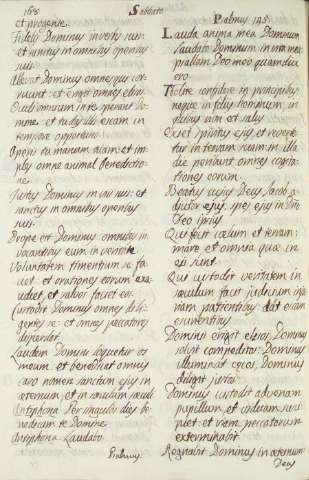 168
Sabbato
et prosenie.
Fidelis Dominus in verbis suis:
et sanctus in omnibus operibus
suis.
Allevat Dominus omnes, qui cor
ruunt: et erigit omnes elisos.
Oculi omnium in te sperant Domi
ne: et tu das illis escam in
tempore opportuno.
Aperis tu manum tuam: et im
ples omne animal benedictio
ne.
Justus Dominus in viis suis: et
sanctus in omnibus operibus
suis.
Prope est Dominus omnibus in
vocantibus eum in veritate.
Voluntatem timentium se fa
ciet: et orationes eorum exa
udiet, et salvos faciet eos.
Custodit Dominus omnes dili
gentes se: et omnes peccatores
disperdet.
Laudem Domini loquetur os
meum: et benedicat omnis
caro nomen sanctum ejus in
æternum, et in sæculum sæculi.
Antiphona. Per singulos dies be
nedicam te Domine.
Antiphona. Laudabo.
Psalmus.
Psalmus 145.
Lauda anima mea Dominum
laudabo Dominum in vita mea:
psallam Deo meo quamdiu
ero.
Nolite confidere in principibus
neque in filiis hominum, in
quibus non est salus.
Exiet spiritus ejus, et revertε
tur in terram suam: in illa
die peribunt omnes cogita
tiones eorum.
Beatus cujus Deus Jacob a
djutor ejus, spes ejus in Dño
Deo ipsius
Qui fecit cœlum et terram:
mare et omnia quæ in
eis sunt.
Qui custodit veritatem in
sæculum facit judicium inju
riam patientibus: dat escam
esurientibus
Dominus erigit elisos, Dominus
solvit compeditos: Dominus
illuminat cæcos, Dominus
diligit justos.
Dominus custodit advenam
pupillum, et viduam susci
piet: et vias peccatorum
exterminabit.
Regnabit Dominus in æternum
Deus